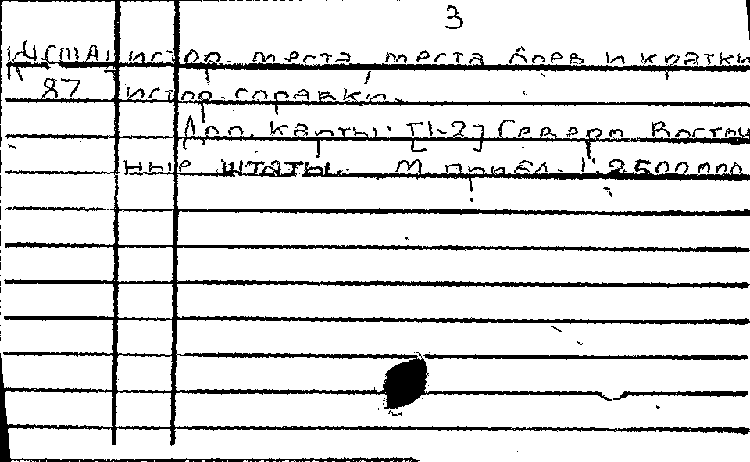 3
К4США истор. места, места боев и кратки
87 истор. справки.
Доп. карты: [1-2] Северо Восточ
ные штаты. М прибл. 1:2500000.